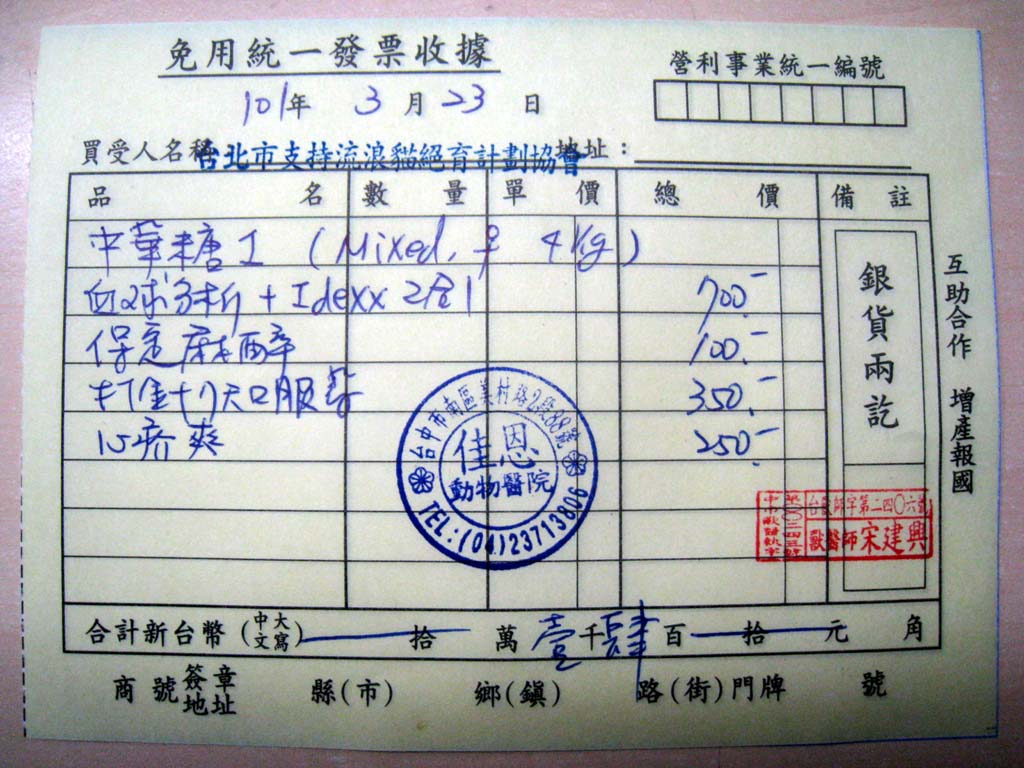 免用統一發票收據
營利事業統一編號
101年 3月 23日
買受人名稱 台北市支持流浪貓絕育計劃協會 地址：
品名 數量 單價 總價 備註
中華糖1 (Mixed, ♀ 4kg)
血球分析 + Idexx 2合1 700.-
保定麻醉 100.-
打針+1天口服藥 350.-
心疥爽 250.-
銀貨兩訖
互助合作 增產報國
台中市南區美村路2段88號
佳恩
動物醫院
TEL:(04)23713806
台獸師字第二四〇六號
獸醫師 宋建興
合計新台幣(中文大寫) 拾 萬 壹 千 肆 百 拾 元 角
商號簽章地址 縣(市) 鄉(鎮) 路(街)門牌 號